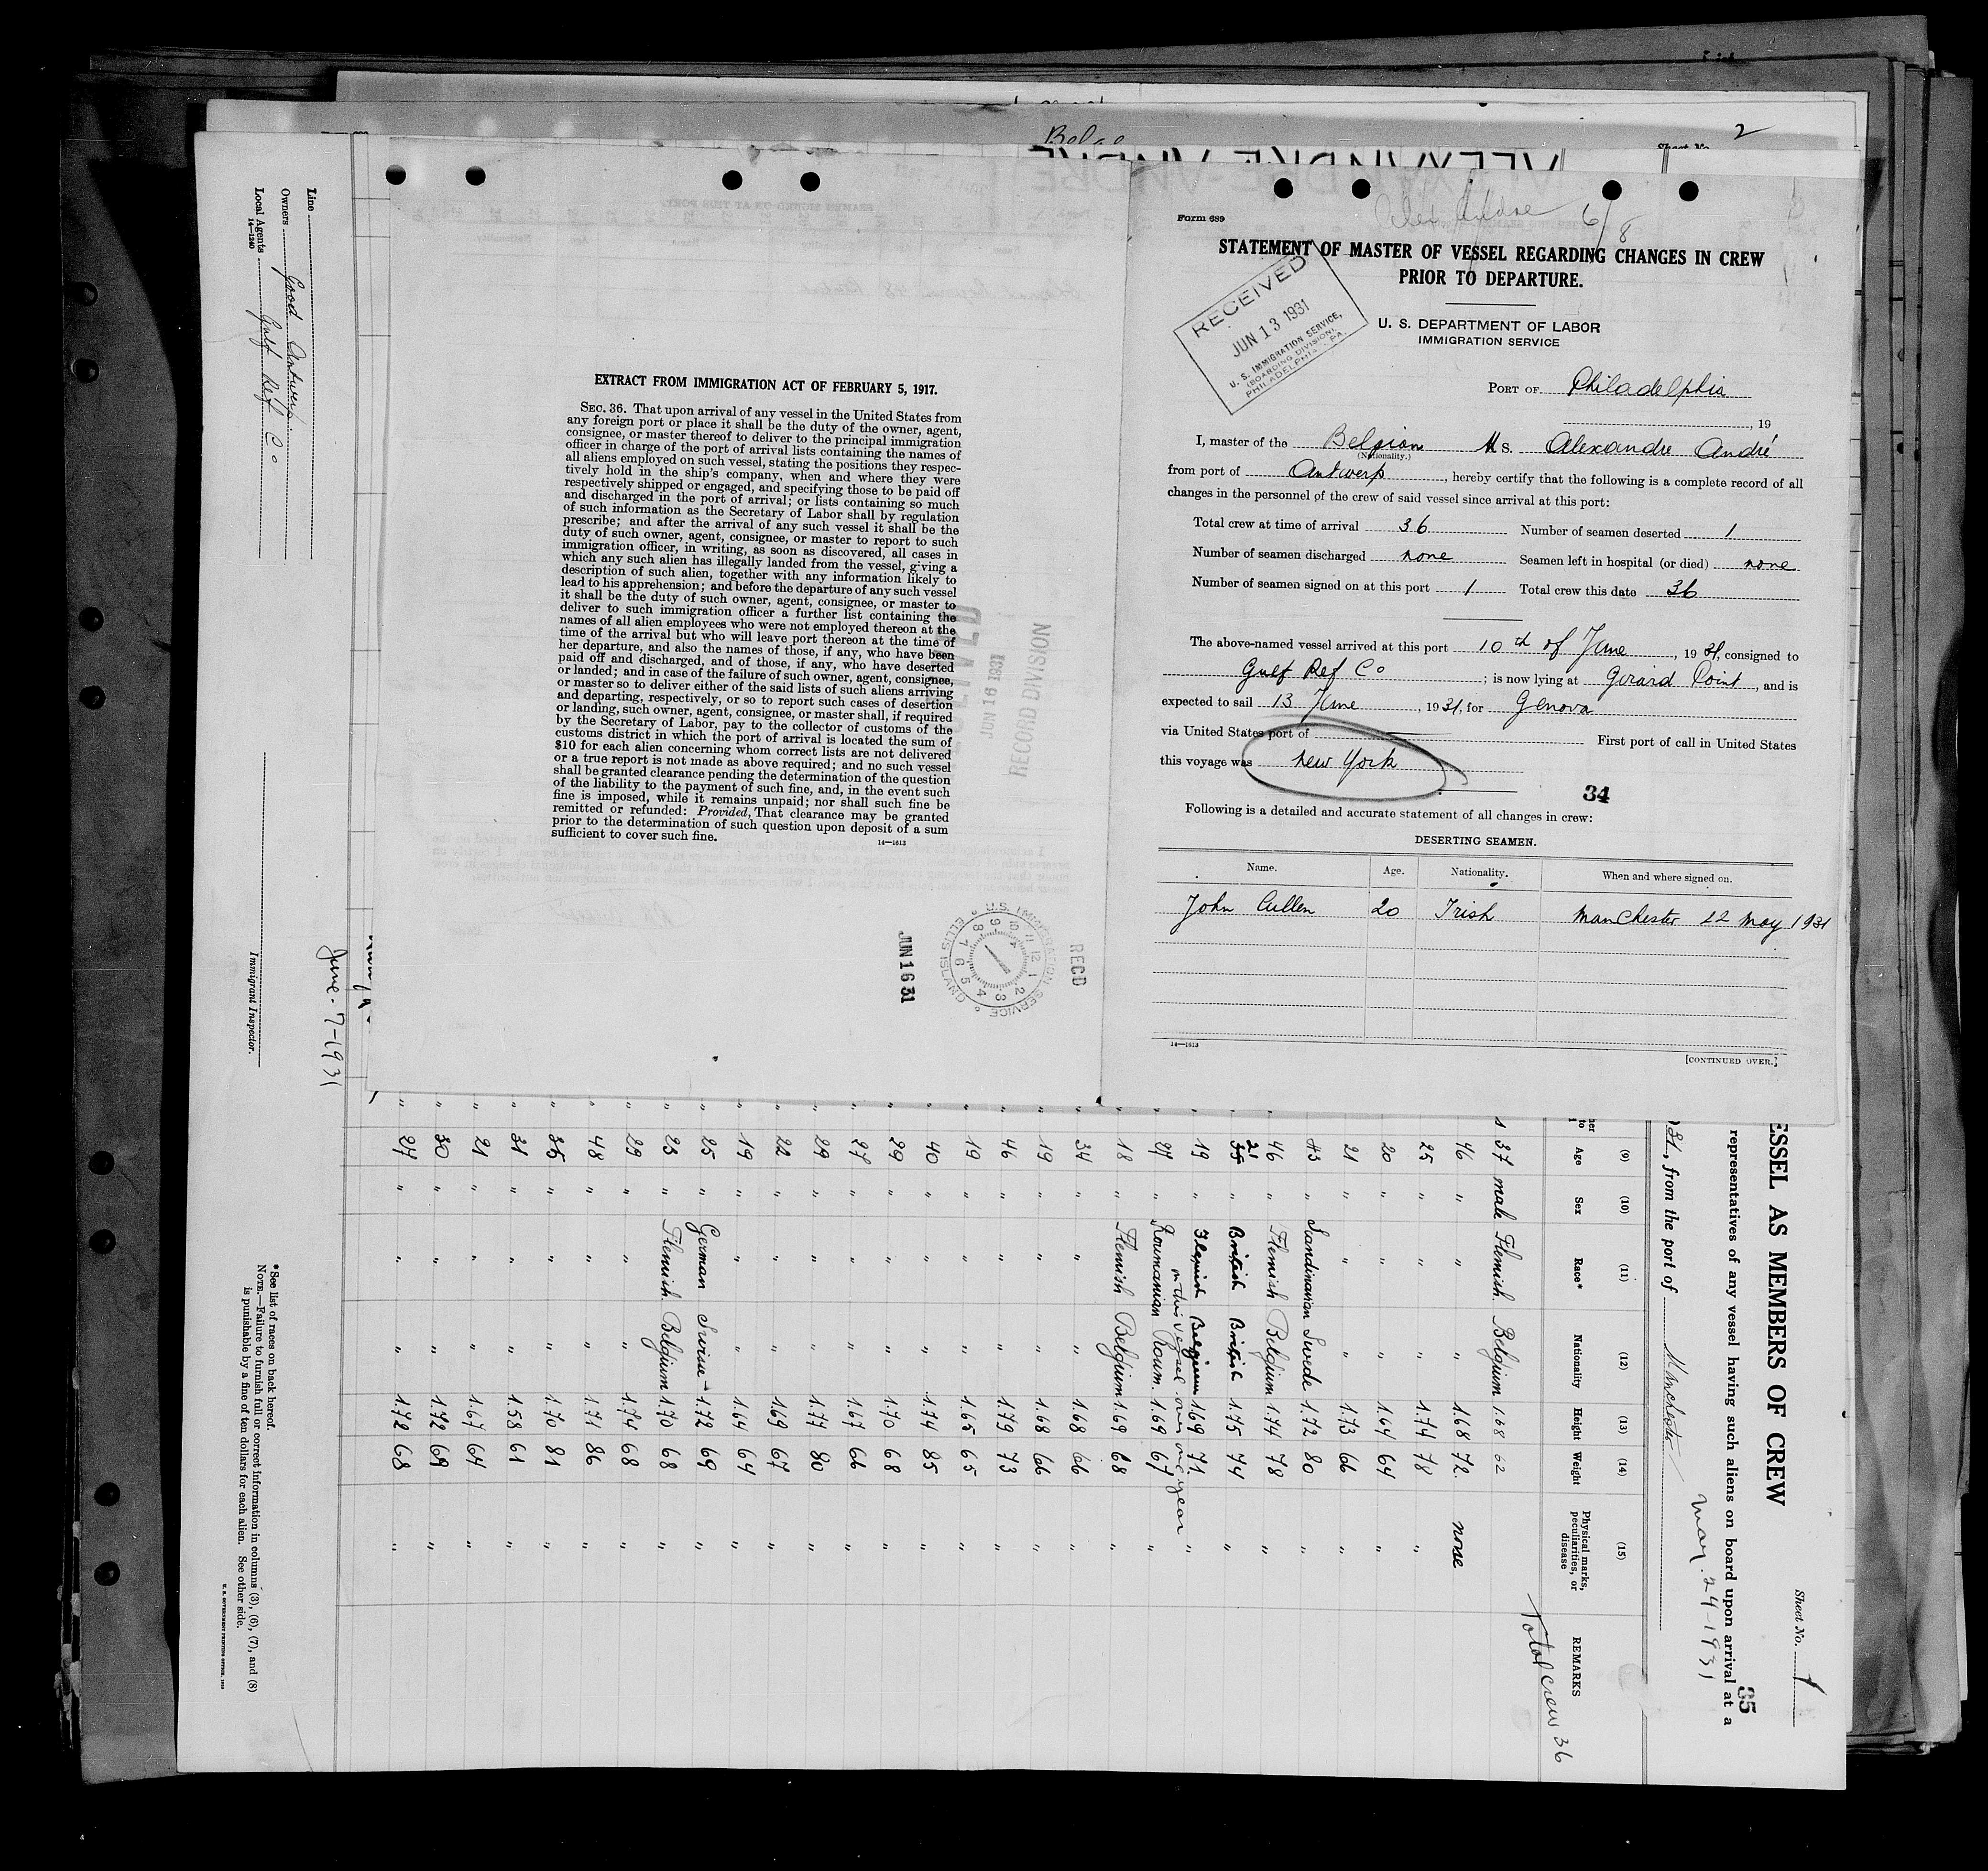 Belge
2
Sheet No.
Form 689
6/8
STATEMENT OF MASTER OF VESSEL REGARDING CHANGES IN CREW
PRIOR TO DEPARTURE.
U. S. DEPARTMENT OF LABOR
IMMIGRATION SERVICE
RECEIVED
JUN 13 1931
U. S. IMMIGRATION SERVICE,
(BOARDING DIVISION),
PHILADELPHIA, PA.
PORT OF Philadelphia
, 19
I, master of the Belgian Ms. Alexandre André
(Nationality.)
from port of Antwerp, hereby certify that the following is a complete record of all
changes in the personnel of the crew of said vessel since arrival at this port:
Total crew at time of arrival 36 Number of seamen deserted 1
Number of seamen discharged none Seamen left in hospital (or died) none
Number of seamen signed on at this port 1 Total crew this date 36
The above-named vessel arrived at this port 10th of June, 1931, consigned to
Gulf Ref Co ; is now lying at Girard Point, and is
expected to sail 13 June, 1931, for Genova
via United States port of First port of call in United States
this voyage was New York
34
Following is a detailed and accurate statement of all changes in crew:
DESERTING SEAMEN.
Name. Age. Nationality. When and where signed on.
John Cullen 20 Irish Manchester 22 May 1931
14—1613
[CONTINUED OVER.]
EXTRACT FROM IMMIGRATION ACT OF FEBRUARY 5, 1917.
SEC. 36. That upon arrival of any vessel in the United States from
any foreign port or place it shall be the duty of the owner, agent,
consignee, or master thereof to deliver to the principal immigration
officer in charge of the port of arrival lists containing the names of
all aliens employed on such vessel, stating the positions they respec-
tively hold in the ship's company, when and where they were
respectively shipped or engaged, and specifying those to be paid off
and discharged in the port of arrival; or lists containing so much
of such information as the Secretary of Labor shall by regulation
prescribe; and after the arrival of any such vessel it shall be the
duty of such owner, agent, consignee, or master to report to such
immigration officer, in writing, as soon as discovered, all cases in
which any such alien has illegally landed from the vessel, giving a
description of such alien, together with any information likely to
lead to his apprehension; and before the departure of any such vessel
it shall be the duty of such owner, agent, consignee, or master to
deliver to such immigration officer a further list containing the
names of all alien employees who were not employed thereon at the
time of the arrival but who will leave port thereon at the time of
her departure, and also the names of those, if any, who have been
paid off and discharged, and of those, if any, who have deserted
or landed; and in case of the failure of such owner, agent, consignee,
or master so to deliver either of the said lists of such aliens arriving
and departing, respectively, or so to report such cases of desertion
or landing, such owner, agent, consignee, or master shall, if required
by the Secretary of Labor, pay to the collector of customs of the
customs district in which the port of arrival is located the sum of
$10 for each alien concerning whom correct lists are not delivered
or a true report is not made as above required; and no such vessel
shall be granted clearance pending the determination of the question
of the liability to the payment of such fine, and, in the event such
fine is imposed, while it remains unpaid; nor shall such fine be
remitted or refunded: Provided, That clearance may be granted
prior to the determination of such question upon deposit of a sum
sufficient to cover such fine.
14—1613
JUN 16 1931
RECORD DIVISION
JUN 16 31
U. S. IMMIGRATION SERVICE
ELLIS ISLAND
RECD
Sheet No. 1
35
ESSEL AS MEMBERS OF CREW
representatives of any vessel having such aliens on board upon arrival at a
31, from the port of Manchester May. 24-1931
(9) (10) (11) (12) (13) (14) (15)
Age Sex Race* Nationality Height Weight Physical marks, peculiarities, or disease REMARKS
Total crew 36
37 male Flemish. Belgium 1.68 62
46 " " " 1.68 72 none
25 " " " 1.74 78 "
20 " " " 1.64 64 "
21 " " " 1.73 66 "
43 " Scandinavian Swede 1.72 80 "
46 " Flemish Belgium 1.74 78 "
35 21 " British British 1.75 74 "
19 " Flemish Belgium 1.69 71 "
on this vessel over one year
27 " Roumanian Roum. 1.69 67 "
18 " Flemish Belgium 1.69 68 "
34 " " " 1.68 66 "
19 " " " 1.68 66 "
46 " " " 1.79 73 "
19 " " " 1.65 65 "
40 " " " 1.74 85 "
29 " " " 1.70 68 "
27 " " " 1.67 66 "
29 " " " 1.77 80 "
22 " " " 1.69 67 "
19 " " " 1.64 64 "
25 " German Swise - 1.72 69 "
23 " Flemish. Belgium 1.70 68 "
29 " " " 1.74 68 "
48 " " " 1.71 86 "
36 " " " 1.70 81 "
31 " " " 1.58 61 "
21 " " " 1.67 64 "
30 " " " 1.72 69 "
24 " " " 1.72 68 "
June - 7-1931
Line
Owners Good Antwerp
Local Agents Gulf Ref. Co
14—1240
Immigrant Inspector.
*See list of races on back hereof.
NOTE.—Failure to furnish full or correct information in columns (3), (6), (7), and (8)
is punishable by a fine of ten dollars for each alien. See other side.